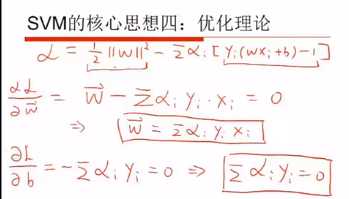 SVM的核心思想四：优化理论
L = 1/2 ||w||² - Σαᵢ[yᵢ(wxᵢ+b)-1]
∂L/∂w⃗ = w⃗ - Σαᵢyᵢ·xᵢ = 0
⇒ w⃗ = Σαᵢyᵢxᵢ
∂L/∂b = -Σαᵢyᵢ = 0 ⇒ Σαᵢyᵢ=0